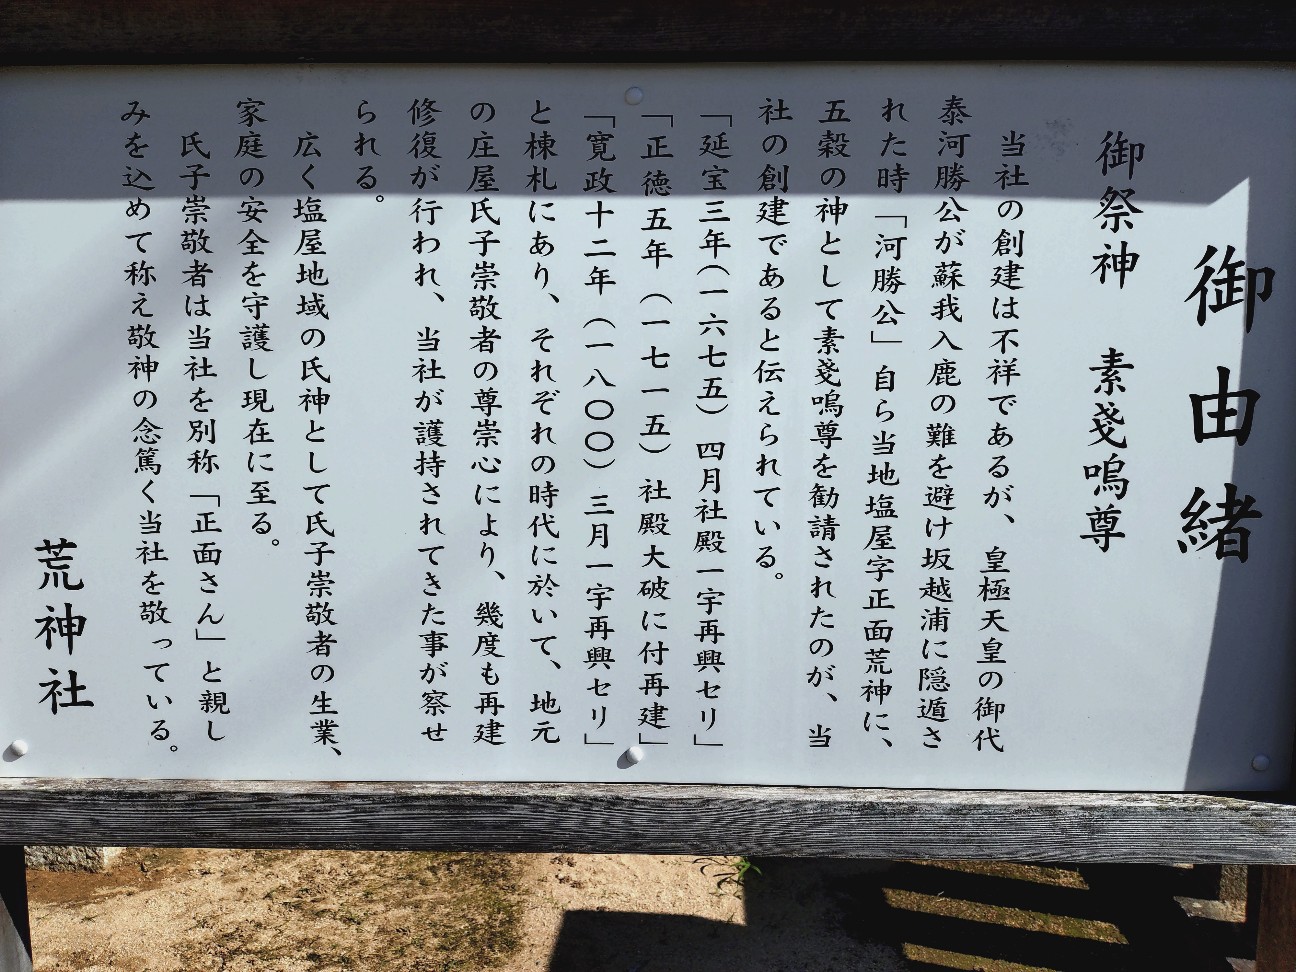 御由緒
御祭神　素戔嗚尊
当社の創建は不祥であるが、皇極天皇の御代
泰河勝公が蘇我入鹿の難を避け坂越浦に隠遁さ
れた時「河勝公」自ら当地塩屋字正面荒神に、
五穀の神として素戔嗚尊を勧請されたのが、当
社の創建であると伝えられている。
「延宝三年（一六七五）四月社殿一宇再興セリ」
「正徳五年（一七一五）社殿大破に付再建」
「寛政十二年（一八〇〇）三月一宇再興セリ」
と棟札にあり、それぞれの時代に於いて、地元
の庄屋氏子崇敬者の尊崇心により、幾度も再建
修復が行われ、当社が護持されてきた事が察せ
られる。
広く塩屋地域の氏神として氏子崇敬者の生業、
家庭の安全を守護し現在に至る。
氏子崇敬者は当社を別称「正面さん」と親し
みを込めて称え敬神の念篤く当社を敬っている。
荒神社